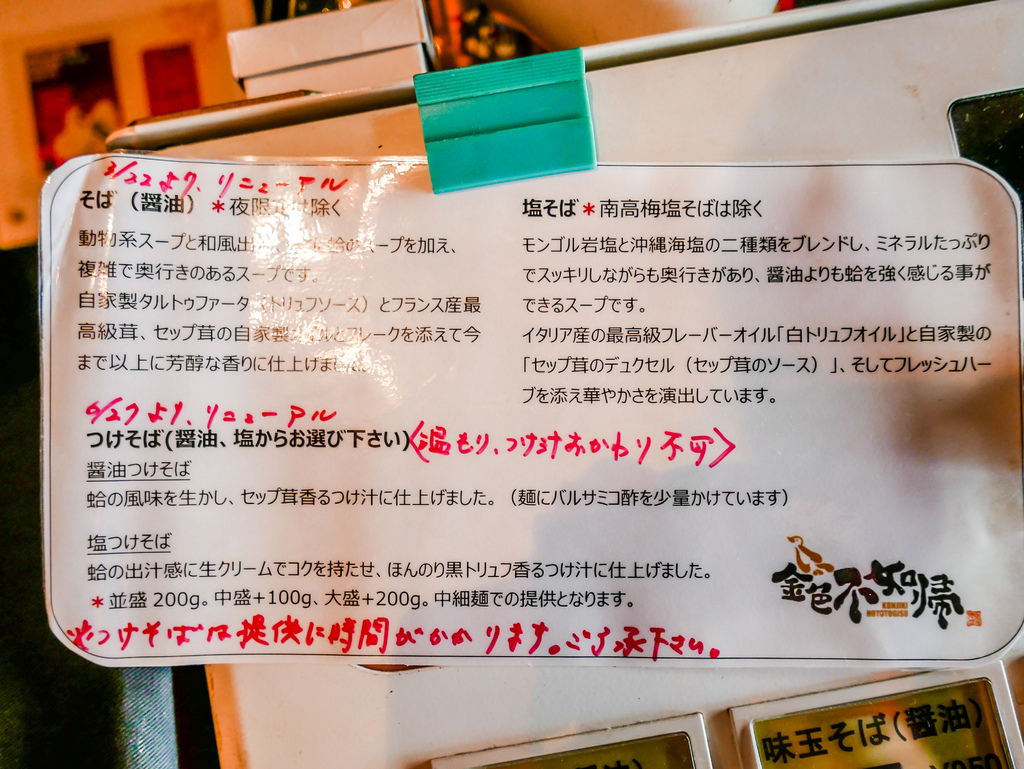 3/22より、リニューアル
そば（醤油）＊夜限定は除く
動物系スープと和風出 スープを加え、
複雑で奥行きのあるスープです。
自家製タルトゥファータ（トリュフソース）とフランス産最
高級茸、セップ茸の自家製 フレークを添えて今
まで以上に芳醇な香りに仕上げました。
塩そば＊南高梅塩そばは除く
モンゴル岩塩と沖縄海塩の二種類をブレンドし、ミネラルたっぷり
でスッキリしながらも奥行きがあり、醤油よりも蛤を強く感じる事が
できるスープです。
イタリア産の最高級フレーバーオイル「白トリュフオイル」と自家製の
「セップ茸のデュクセル（セップ茸のソース）」、そしてフレッシュハー
ブを添え華やかさを演出しています。
6/27より、リニューアル
つけそば(醤油、塩からお選び下さい)〈温もり、つけ汁おかわり不可〉
醤油つけそば
蛤の風味を生かし、セップ茸香るつけ汁に仕上げました。（麺にバルサミコ酢を少量かけています）
塩つけそば
蛤の出汁感に生クリームでコクを持たせ、ほんのり黒トリュフ香るつけ汁に仕上げました。
＊並盛 200g。中盛+100g、大盛+200g。中細麺での提供となります。
※つけそばは提供に時間がかかります。ご了承下さい。
金色不如帰
KONJIKI
HOTOTOGISU
味玉そば（醤油）
¥950